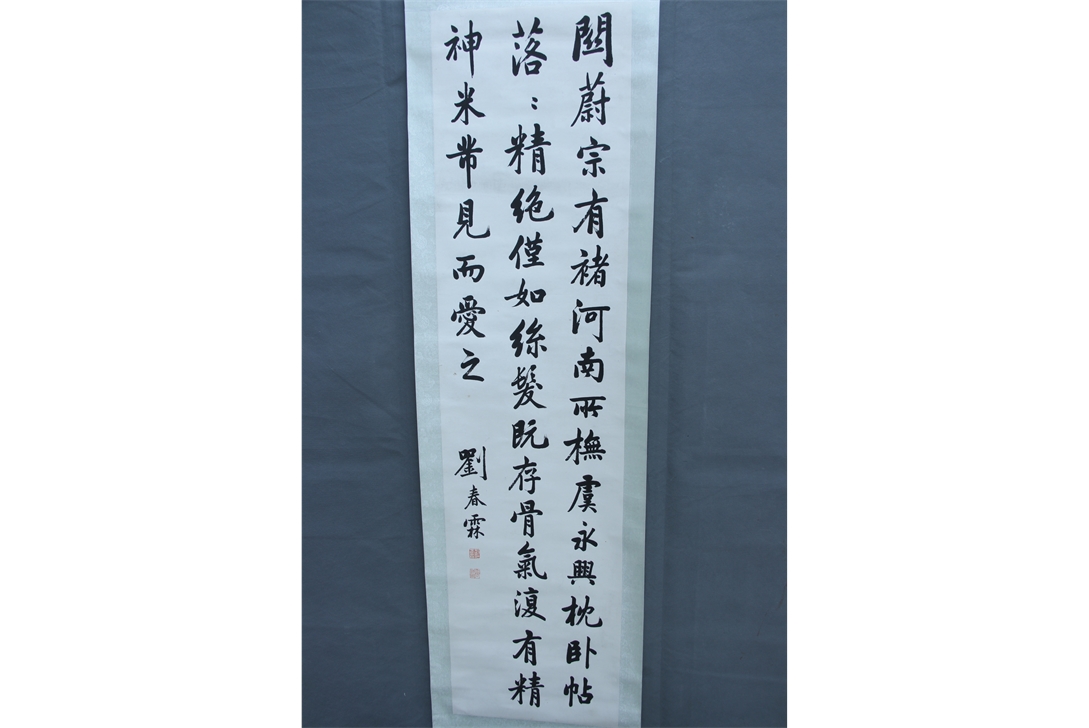 關蔚宗有褚河南所橅虞永興枕卧帖
落〻精絶僅如絲髮既存骨氣復有精
神米芾見而愛之
劉春霖